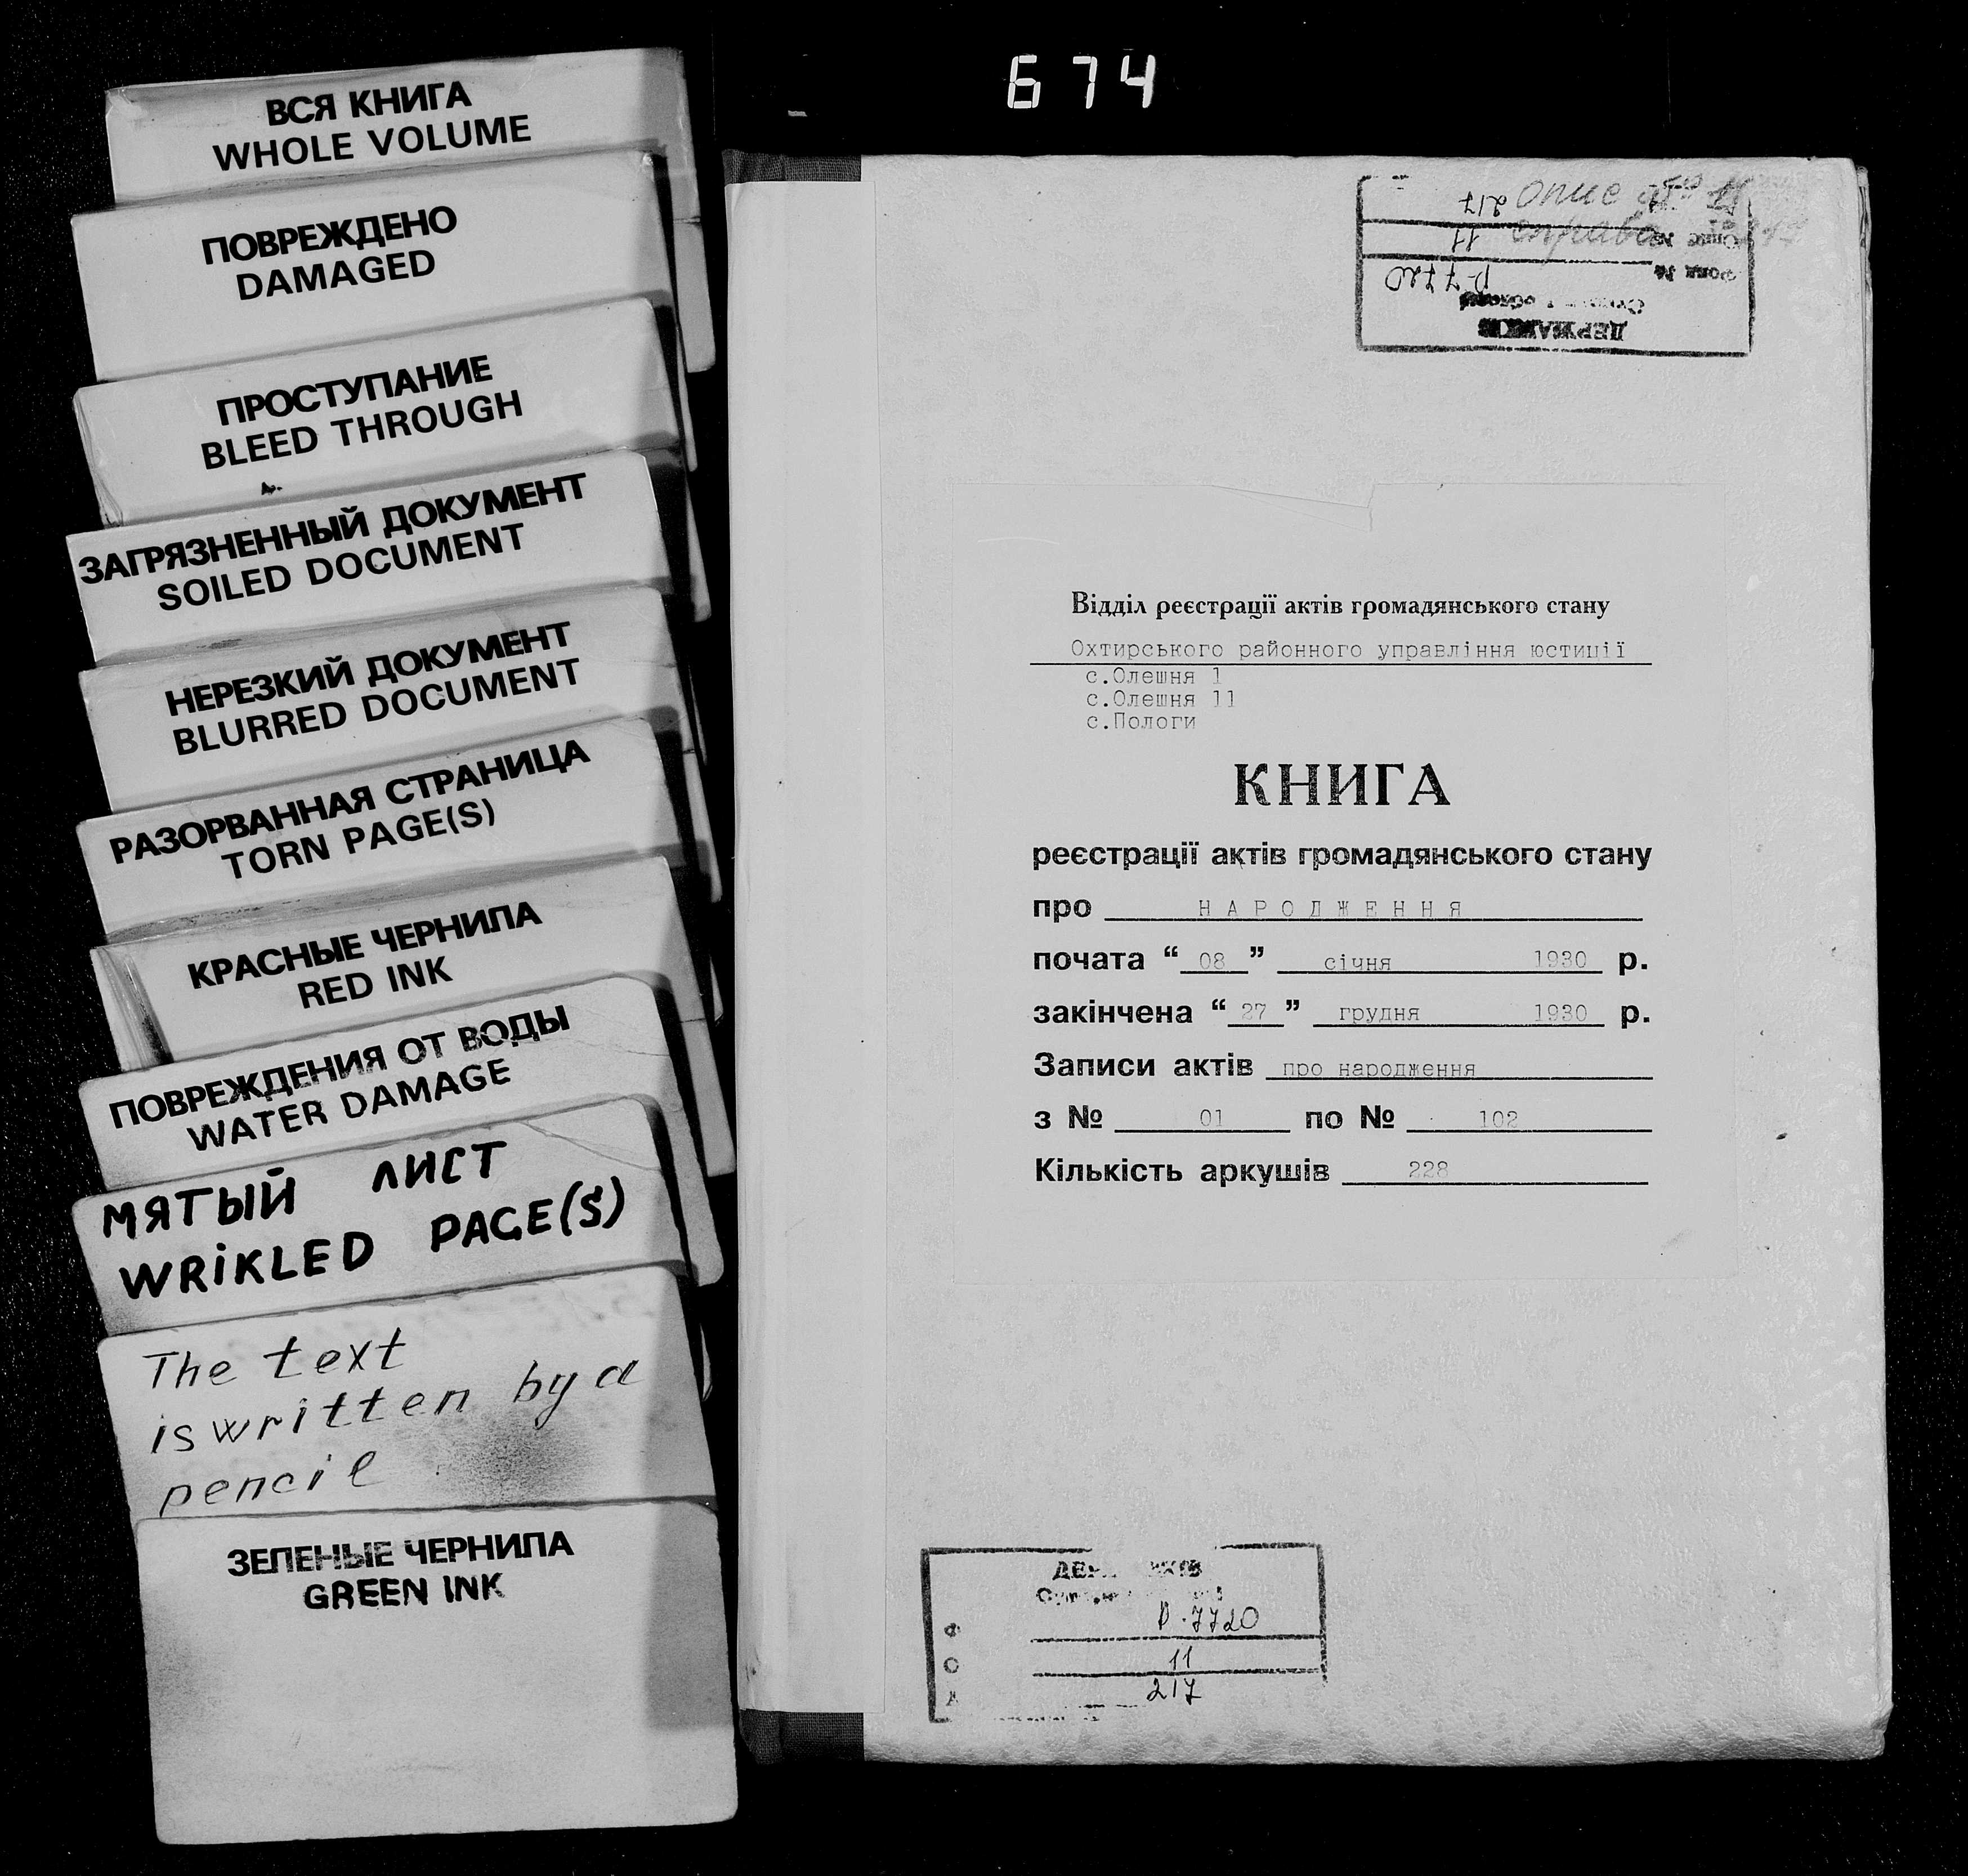 674
ВСЯ КНИГА
WHOLE VOLUME
ПОВРЕЖДЕНО
DAMAGED
ПРОСТУПАНИЕ
BLEED THROUGH
ЗАГРЯЗНЕННЫЙ ДОКУМЕНТ
SOILED DOCUMENT
НЕРЕЗКИЙ ДОКУМЕНТ
BLURRED DOCUMENT
РАЗОРВАННАЯ СТРАНИЦА
TORN PAGE(S)
КРАСНЫЕ ЧЕРНИЛА
RED INK
ПОВРЕЖДЕНИЯ ОТ ВОДЫ
WATER DAMAGE
МЯТЫЙ ЛИСТ
WRIKLED PAGE(S)
The text
is written by a
pencil
ЗЕЛЕНЫЕ ЧЕРНИЛА
GREEN INK
опис
справа
Фонд № Р-7720
Опис № 11
217
Відділ реєстрації актів громадянського стану
Охтирського районного управління юстиції
с.Олешня 1
с.Олешня 11
с.Пологи
КНИГА
реєстрації актів громадянського стану
про НАРОДЖЕННЯ
почата “08” січня 1930 р.
закінчена “27” грудня 1930 р.
Записи актів про народження
з № 01 по № 102
Кількість аркушів 228
Р-7720
11
217